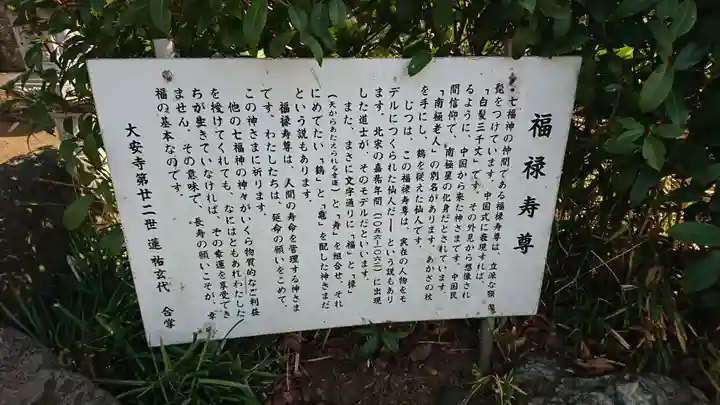 福禄寿尊
七福神の仲間である福禄寿尊は、立派な顎
髭をつけています。中国式に表現すれば、
「白髪三千丈」です。その外見から想像され
るように、中国から来た神さまです。中国民
間信仰で、南極星の化身だとされています。
「南極老人」の別名があります。あかざの杖
を手にし、鶴を従えた仙人です。
じつは、この福禄寿尊は、実在の人物をモ
デルにつくられた仙人だ―という説もあり
ます。北宋の嘉祐年間(一〇五六―一〇六三)に出現
した道士が、そのモデルだといいます。
また、まさに文字通りに「福」と「禄」
(天からあたえられる幸福)と「寿」を組合せ、それ
にめでたい「鶴」と「亀」を配した神さまだ
という説もあります。
福禄寿尊は、人間の寿命を管理する神さま
です。わたしたちは、延命の願いをこめて、
この神さまに祈ります。
他の七福神の神々がいくら物質的なご利益
を授けてくれても、なにはともあれわたした
ちが生きていなければ、その幸運を享受でき
ません。その意味で、長寿の願いこそが、幸
福の基本なのです。
大安寺第廿二世 蓮祐玄代 合掌